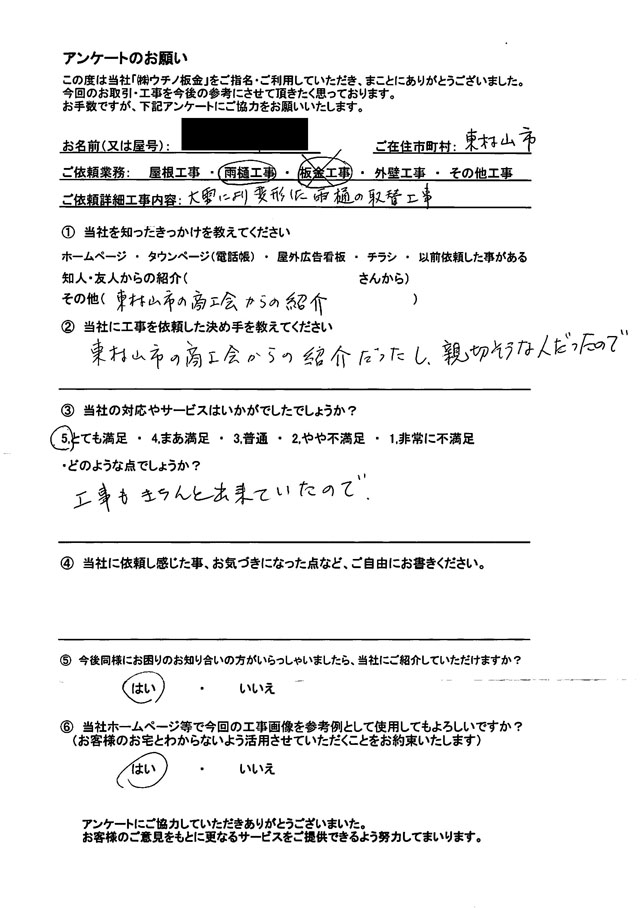 アンケートのお願い
この度は当社「㈱ウチノ板金」をご指名・ご利用していただき、まことにありがとうございました。
今回のお取引・工事を今後の参考にさせて頂きたく思っております。
お手数ですが、下記アンケートにご協力をお願いいたします。
お名前(又は屋号): ご在住市町村: 東村山市
ご依頼業務: 屋根工事 ・ 雨樋工事 ・ 板金工事 ・ 外壁工事 ・ その他工事
ご依頼詳細工事内容: 大雪により変形した雨樋の取替工事
① 当社を知ったきっかけを教えてください
ホームページ ・ タウンページ(電話帳) ・ 屋外広告看板 ・ チラシ ・ 以前依頼した事がある
知人・友人からの紹介( さんから)
その他( 東村山市の商工会からの紹介 )
② 当社に工事を依頼した決め手を教えてください
東村山市の商工会からの紹介だったし、親切そうな人だったので
③ 当社の対応やサービスはいかがでしたでしょうか?
5,とても満足 ・ 4,まあ満足 ・ 3,普通 ・ 2,やや不満足 ・ 1,非常に不満足
・どのような点でしょうか?
工事もきちんと出来ていたので.
④ 当社に依頼し感じた事、お気づきになった点など、ご自由にお書きください。
⑤ 今後同様にお困りのお知り合いの方がいらっしゃいましたら、当社にご紹介していただけますか?
はい ・ いいえ
⑥ 当社ホームページ等で今回の工事画像を参考例として使用してもよろしいですか?
(お客様のお宅とわからないよう活用させていただくことをお約束いたします)
はい ・ いいえ
アンケートにご協力していただきありがとうございまいた。
お客様のご意見をもとに更なるサービスをご提供できるよう努力してまいります。